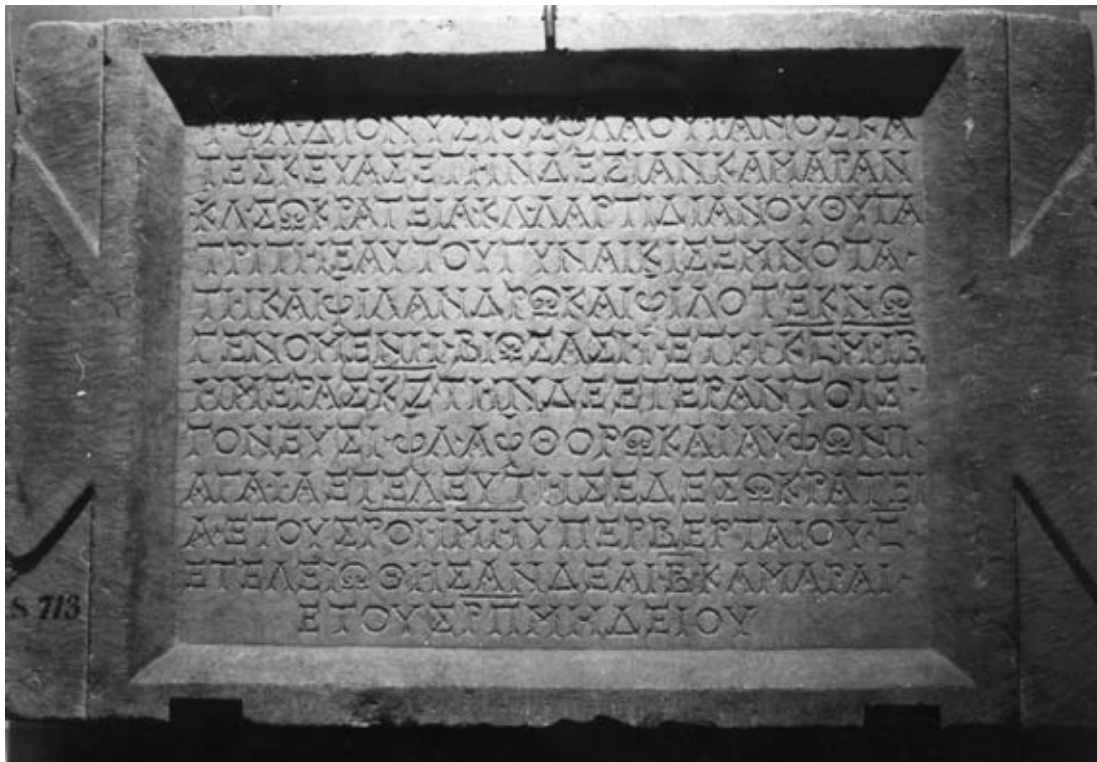 Τ·ΦΛ·ΔΙΟΝΥΣΙΟΣΦΛΑΟΥΙΑΝΟΣΚΑ
ΤΕΣΚΕΥΑΣΕΤΗΝΔΕΞΙΑΝΚΑΜΑΡΑΝ
ΚΛ·ΣΩΚΡΑΤΕΙΑ·ΚΛ·ΛΑΡΤΙΔΙΑΝΟΥΘΥΓΑ
ΤΡΙΤΗΕΑΥΤΟΥΓΥΝΑΙΚΙΣΕΜΝΟΤΑ·
ΤΗΚΑΙΦΙΛΑΝΔΡΩΚΑΙΦΙΛΟΤΕΚΝΩ
ΓΕΝΟΜΕΝΗ·ΒΙΩΣΑΣΗ·ΕΤΗ·ΚϚ·Μ·ΙΒ
ΗΜΕΡΑΣΚΖ·ΤΗΝΔΕΕΤΕΡΑΝΤΟΙΣ·
ΓΟΝΕΥΣΙ·ΦΛ·ΑΦΘΟΡΩΚΑΙΑΥΦΩΝΙ·
ΑΓΑΙΑΕΤΕΛΕΥΤΗΣΕΔΕΣΩΚΡΑΤΕΙ
Α·ΕΤΟΥΣΡΟΗΜΗΥΠΕΡΒΕΡΤΑΙΟΥ·Ϛ·
ΕΤΕΛΕΙΩΘΗΣΑΝΔΕΑΙ·Β·ΚΑΜΑΡΑΙ·
ΕΤΟΥΣΡΠΜΗΔΕΙΟΥ
S 713